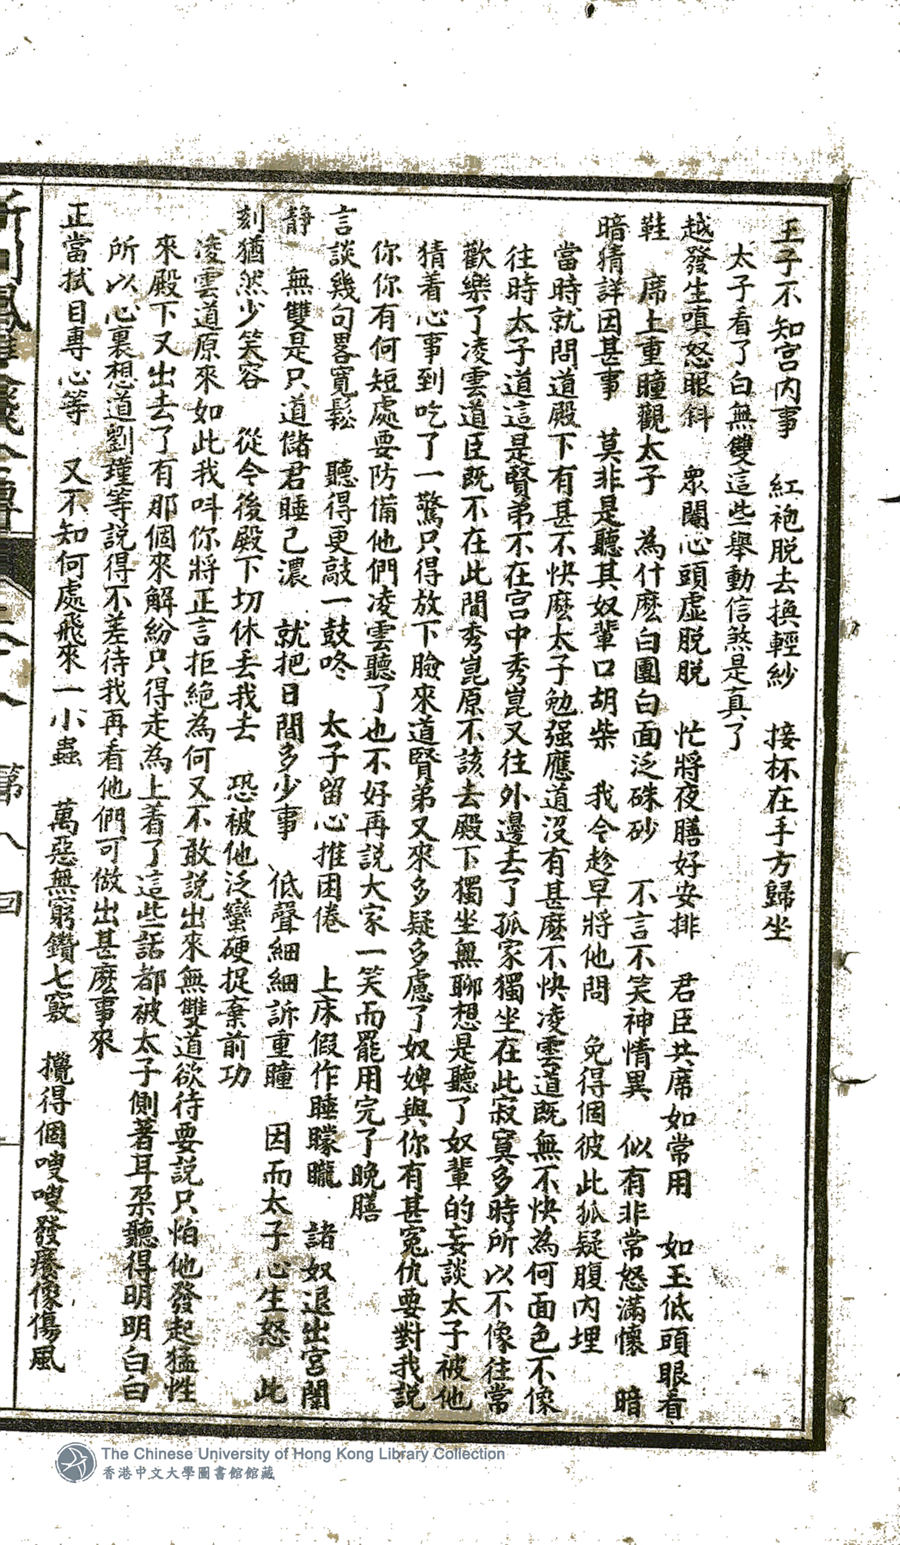 王子不知宮內事　紅袍脱去換輕紗　接杯在手方歸坐
太子看了白無雙這些舉動信煞是真了
越發生嗔怒眼斜　衆閹心頭虛脱脱　忙將夜膳好安排　君臣共席如常用　如玉低頭眼看
鞋　席上重瞳觀太子　為什麽白圍白面泛硃砂　不言不笑神情異　似有非常怒滿懷　暗
暗猜詳因甚事　莫非是聽其奴輩口胡柴　我今趁早將他問　免得個彼此狐疑腹內埋
當時就問道殿下有甚不快麽太子勉强應道沒有甚麽不快凌雲道既無不快為何面色不像
往時太子道這是賢弟不在宫中秀崑又往外邊去了孤家獨坐在此寂寞多時所以不像往常
歡樂了凌雲道臣既不在此間秀崑原不該去殿下獨坐無聊想是聽了奴輩的妄談太子被他
猜着心事到吃了一驚只得放下臉來道賢弟又來多疑多慮了奴婢與你有甚冤仇要對我説
你你有何短處要防備他們凌雲聽了也不好再説大家一笑而罷用完了晚膳
言談幾句畧寬鬆　聽得更敲一鼓咚　太子留心推困倦　上床假作睡矇矓　諸奴退出宮闈
靜　無雙是只道儲君睡已濃　就把日間多少事　低聲細細訴重瞳　因而太子心生怒　此
刻猶然少笑容　從今後殿下切休丢我去　恐被他泛蠻硬捉棄前功
凌雲道原來如此我呌你將正言拒絕為何又不敢説出來無雙道欲待要説只怕他發起猛性
來殿下又出去了有那個來解紛只得走為上着了這些話都被太子側著耳朶聽得明明白白
所以心裏想道劉瑾等說得不差待我再看他們可做出甚麽事來
正當拭目專心等　又不知何處飛來一小蟲　萬惡無窮鑽七竅　攪得個嗖嗖發癢像傷風
第八回
The Chinese University of Hong Kong Library Collection
香港中文大學圖書館館藏